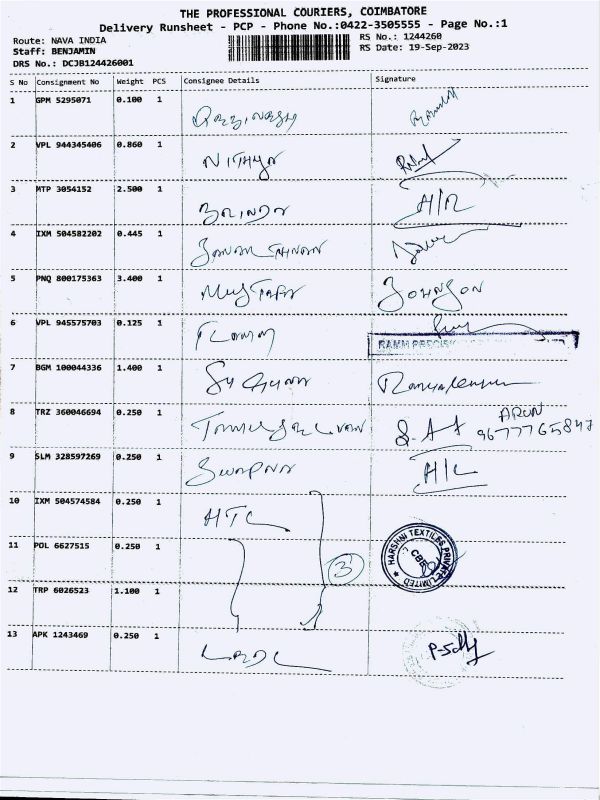 THE PROFESSIONAL COURIERS, COIMBATORE
Delivery Runsheet - PCP - Phone No.:0422-3505555 - Page No.:1
Route: NAVA INDIA
RS No.: 1244260
Staff: BENJAMIN
RS Date: 19-Sep-2023
DRS No.: DCJB124426001
S No Consignment No Weight PCS Consignee Details Signature
1 GPM 5295071 0.100 1
2 VPL 944345406 0.860 1 NITHYA
3 MTP 3054152 2.500 1 BRINDA H/R
4 IXM 504582202 0.445 1
5 PNQ 800175363 3.400 1 MUSTAFA JOHNSON
6 VPL 945575703 0.125 1
RAMM PRECISION
7 BGM 100044336 1.400 1
ARUN
8 TRZ 360046694 0.250 1 TAMILSELVAN 9677765847
9 SLM 328597269 0.250 1 SWAPNA H/L
10 IXM 504574584 0.250 1 HTL
11 POL 6627515 0.250 1 3 HARSHNI TEXTILES PRIVATE LIMITED CBE
12 TRP 6026523 1.100 1
13 APK 1243469 0.250 1